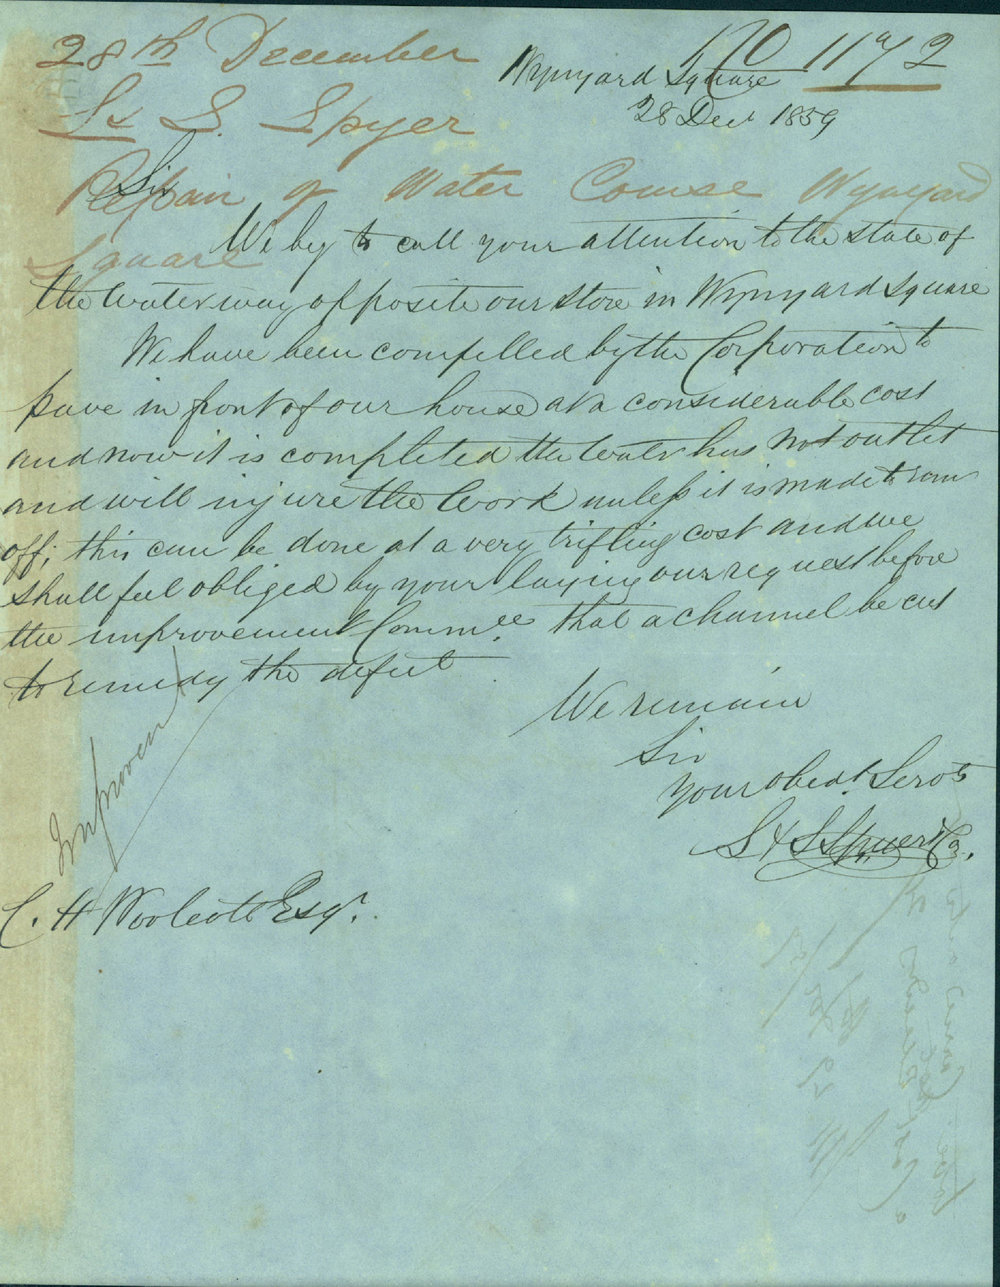 28th December
No 1172
Ls S. Spyer
Repair of Water Course Wynyard
Square
Wynyard Square
28 Decr 1859
Sir
We beg to call your attention to the state of
the water way opposite our store in Wynyard Square
We have been compelled by the Corporation to
pave in front of our house at a considerable cost
and now it is completed the water has not outlet
and will injure the work unless it is made to run
off; this can be done at a very trifling cost and we
shall feel obliged by your laying our request before
the improvement Commee. that a channel be cut
to remedy the defect
We remain
Sir
Your obedt. Servts
S & S Spyer & Co.
Improvement
C. H Woolcott Esqr.